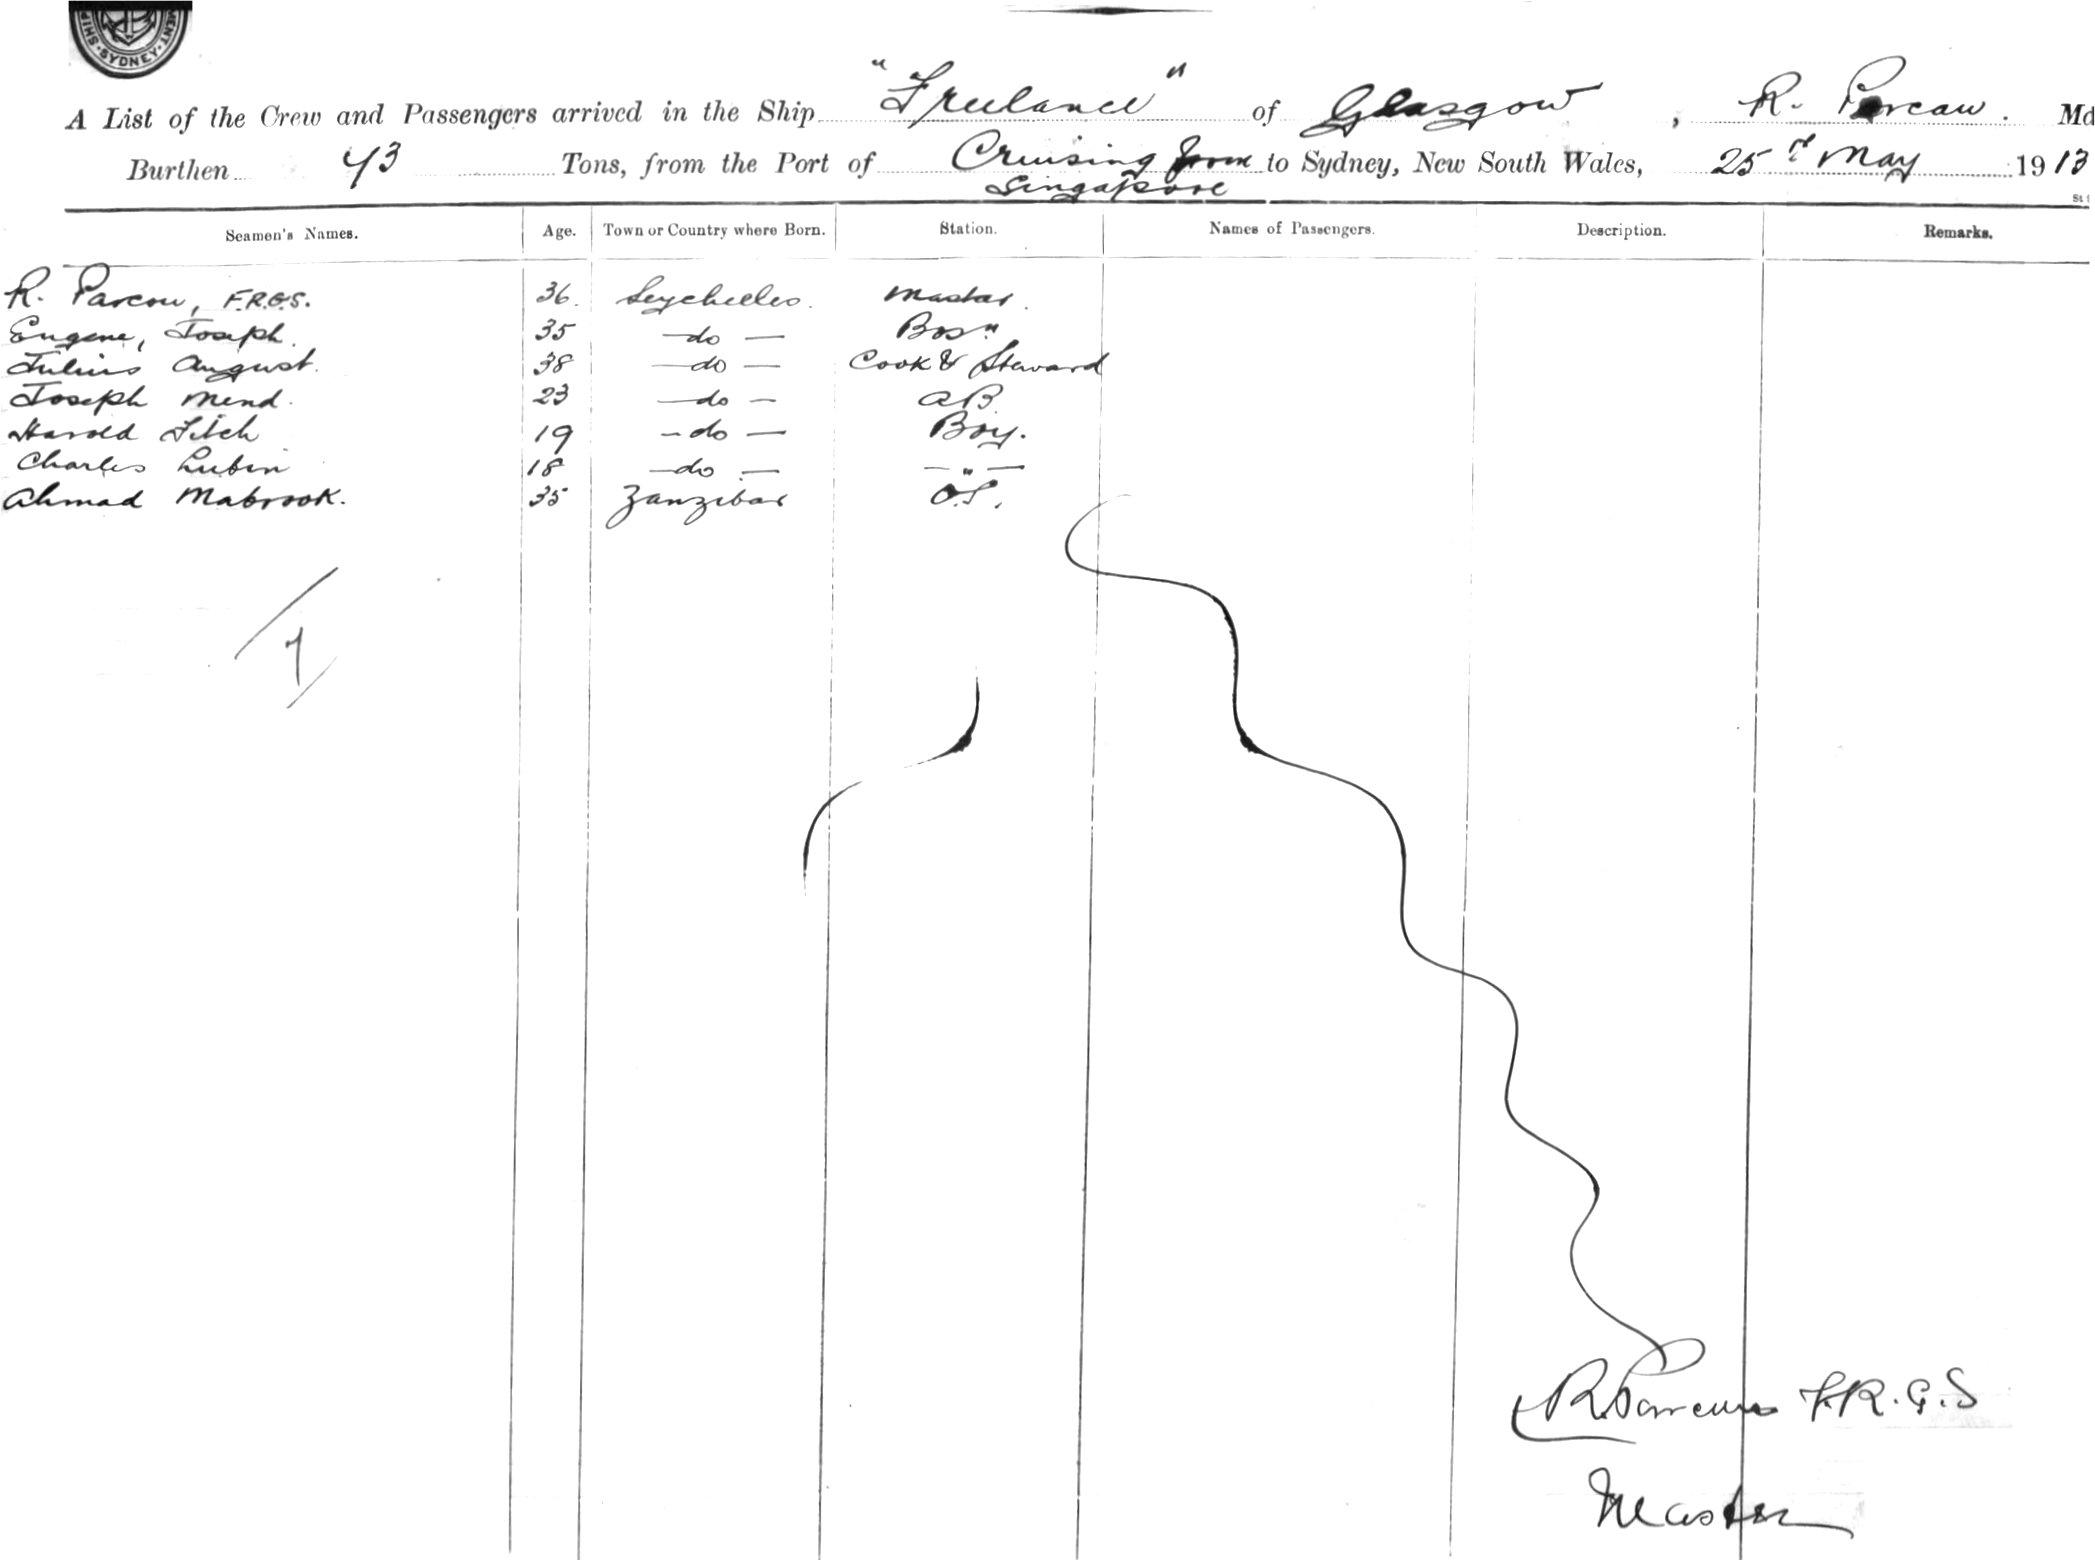 SHIP · SYDNEY · MENT
A List of the Crew and Passengers arrived in the Ship "Freelance" of Glasgow, R. Parcou. Md
Burthen 43 Tons, from the Port of Cruising from Singapore to Sydney, New South Wales, 25th May 1913
Seamen's Names. Age. Town or Country where Born. Station. Names of Passengers. Description. Remarks.
R. Parcou, F.R.G.S. 36. Seychelles. Master.
Eugene, Joseph. 35 — do — Bosn
Julius August. 38 — do — Cook & Steward
Joseph Mend. 23 — do — AB
Harold Fitch 19 — do — Boy.
Charles Lubin 18 — do — — " —
Ahmad Mabrook. 35 Zanzibar O.S.
7
R. Parcou F.R.G.S
Master